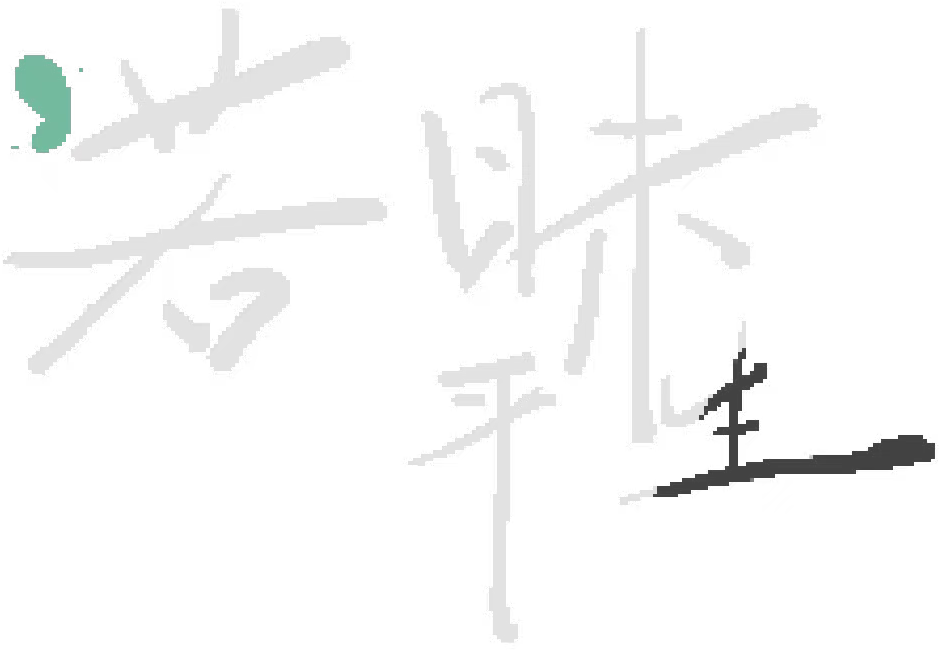 若昧
平生